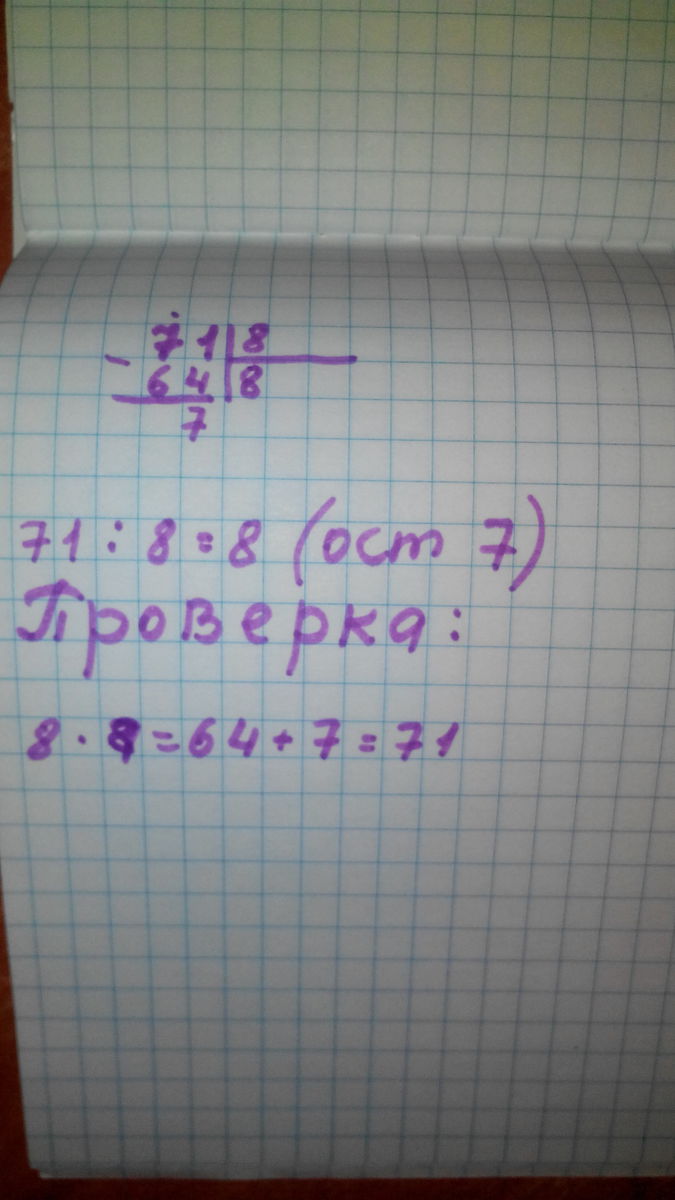 71|8
- 64|8
7
71 : 8 = 8 (ост 7)
Проверка:
8 · 8 = 64 + 7 = 71